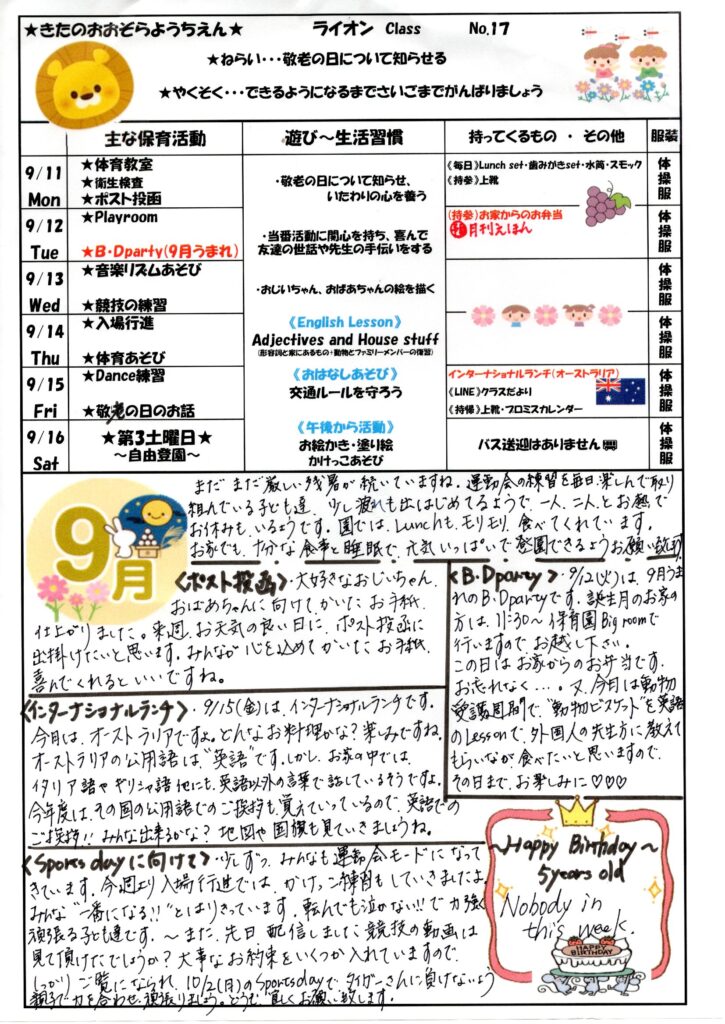 ★きたのおおぞらようちえん★ ライオン Class No.17
★ねらい・・・敬老の日について知らせる
★やくそく・・・できるようになるまでさいごまでがんばりましょう
主な保育活動 遊び～生活習慣 持ってくるもの ・ その他 服装
9/11 Mon
★体育教室
★衛生検査
★ポスト投函
・敬老の日について知らせ、
いたわりの心を養う
《毎日》Lunch set・歯みがきset・水筒・スモック
《持参》上靴
体操服
9/12 Tue
★Playroom
★B・Dparty(9月うまれ)
・当番活動に関心を持ち、喜んで
友達の世話や先生の手伝いをする
(持参)お家からのお弁当
月刊えほん
体操服
9/13 Wed
★音楽リズムあそび
★競技の練習
・おじいちゃん、おばあちゃんの絵を描く
体操服
9/14 Thu
★入場行進
★体育あそび
《English Lesson》
Adjectives and House stuff
(形容詞と家にあるもの+動物とファミリーメンバーの復習)
体操服
9/15 Fri
★Dance練習
★敬老の日のお話
《おはなしあそび》
交通ルールを守ろう
インターナショナルランチ(オーストラリア)
《LINE》クラスだより
《持帰》上靴・プロミスカレンダー
体操服
9/16 Sat
★第3土曜日★
～自由登園～
《午後から活動》
お絵かき・塗り絵
かけっこあそび
バス送迎はありません
体操服
9月
まだまだ厳しい残暑が続いていますね。運動会の練習を毎日、楽しんで取り
組んでいる子ども達、少し疲れも出はじめてるようで、一人、二人とお熱で
お休みもいるようです。園では、Lunchも、モリモリ、食べてくれています。
お家でも、十分な食事と睡眠で、元気いっぱいで登園できるようお願い致します
<ポスト投函>・大好きなおじいちゃん、
おばあちゃんに向けてかいたお手紙、
仕上がりました。来週、お天気の良い日に、ポスト投函に
出掛けたいと思います。みんなが心を込めてかいたお手紙、
喜んでくれるといいですね。
<B.Dparty>・9/12(火)は、9月うま
れのB・Dpartyです。誕生月のお家の
方は、11:30～保育園Big roomで
行いますので、お越し下さい。
この日はお家からのお弁当です。
お忘れなく…。又、今月は動物
愛護週間で、"動物ビスケット"を英語
のLessonで、外国人の先生方に教えて
もらいながら食べたいと思いますので、
その日まで、お楽しみに♡♡♡
<インターナショナルランチ>・9/15(金)は、インターナショナルランチです。
今月は、オーストラリアですよ。どんなお料理かな?楽しみですね。
オーストラリアの公用語は、"英語"です。しかし、お家の中では、
イタリア語やギリシャ語、他にも、英語以外の言葉で話しているそうですよ。
今年度は、その国の公用語でのご挨拶も覚えていっているので、英語での
ご挨拶!!みんな出来るかな?地図や国旗も見ていきましょうね。
<Sports dayに向けて>・少しずつ、みんなも運動会モードになって
きています。今週より入場行進では、かけっこ練習もしていきましたよ。
みんな"一番になる!!"とはりきっています。転んでも泣かない!!で力強く
頑張る子ども達です。～また、先日配信しました競技の動画は
見て頂けたでしょうか?大事なお約束をいくつか入れていますので、
しっかりご覧になられ、10/2(月)のSportsdayで、タイガーさんに負けないよう
親子で力を合わせ、頑張りましょう。どうぞ宜しくお願い致します。
～Happy Birthday～
5years old
Nobody in
this week.
HAPPY BIRTHDAY